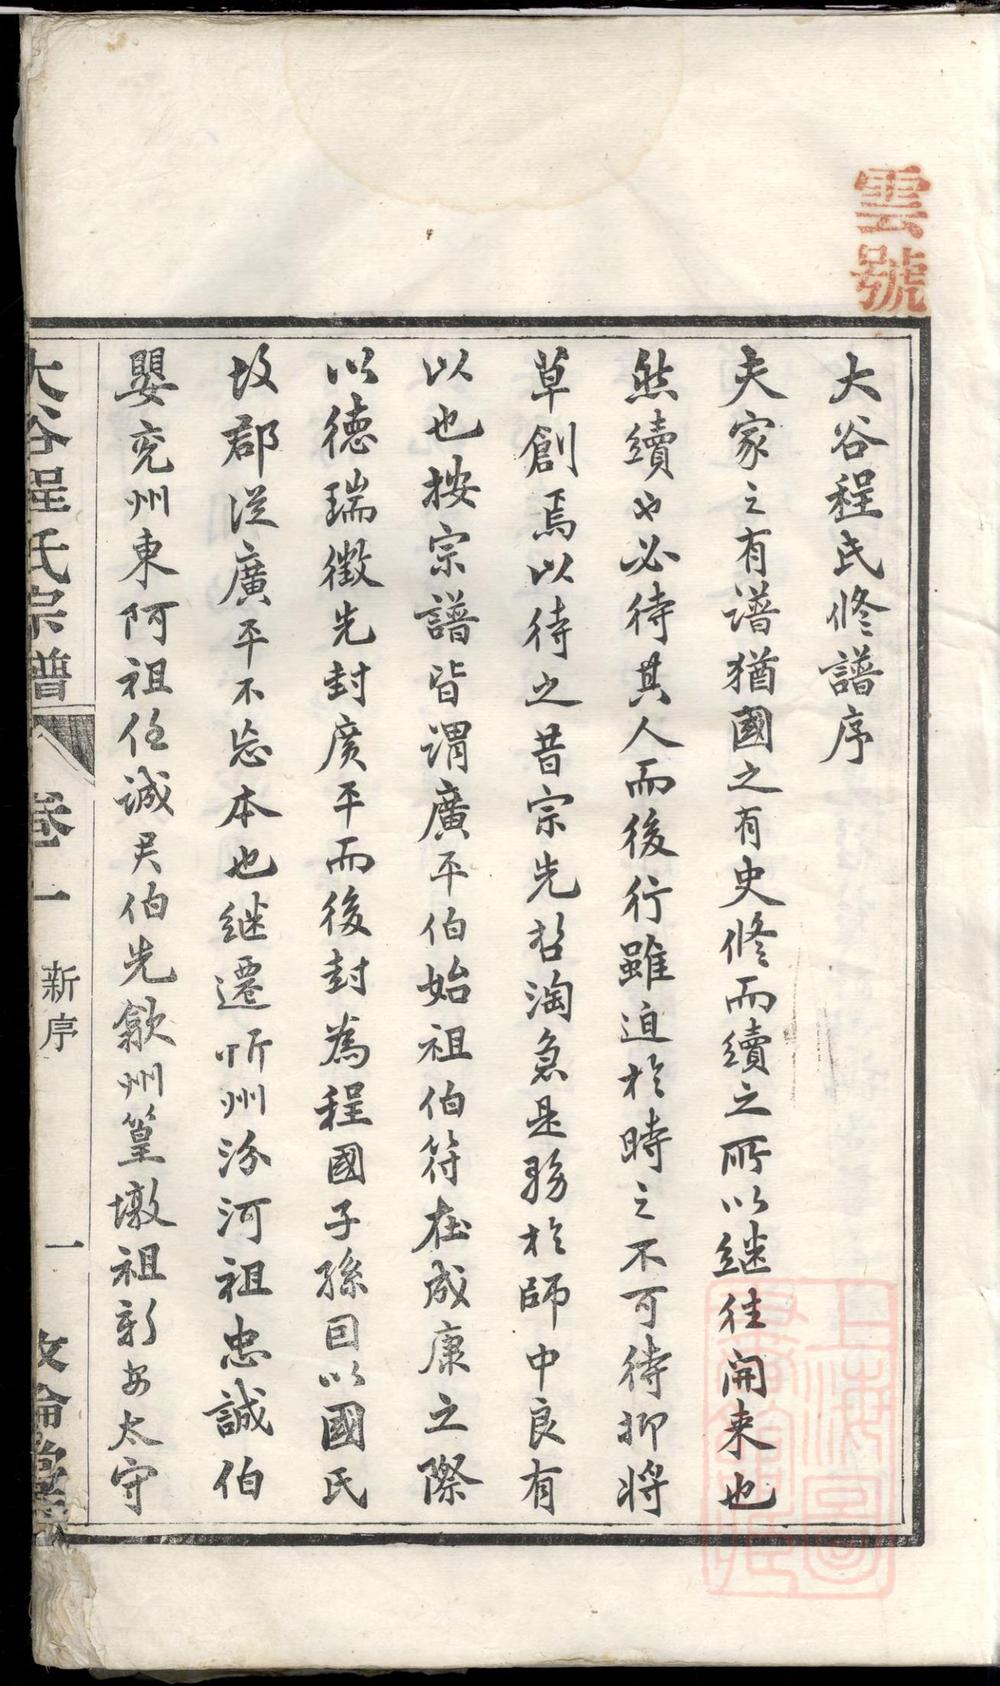 雲號
大谷程氏修譜序
夫家之有譜猶國之有史修而續之所以継往開来也
然續也必待其人而後行雖迫於時之不可待抑将
草創焉以待之昔宗先哲淘急是務於師中良有
以也按宗譜皆謂廣平伯始祖伯符在成康之際
以德瑞徵先封廣平而後封為程國子孫因以國氏
故郡從廣平不忘本也継遷听州汾河祖忠誠伯
嬰兖州東阿祖任誠君伯先歙州篁墩祖新安太守
大谷程氏宗譜
卷一
新序
一
敘倫堂
上海圖書館藏